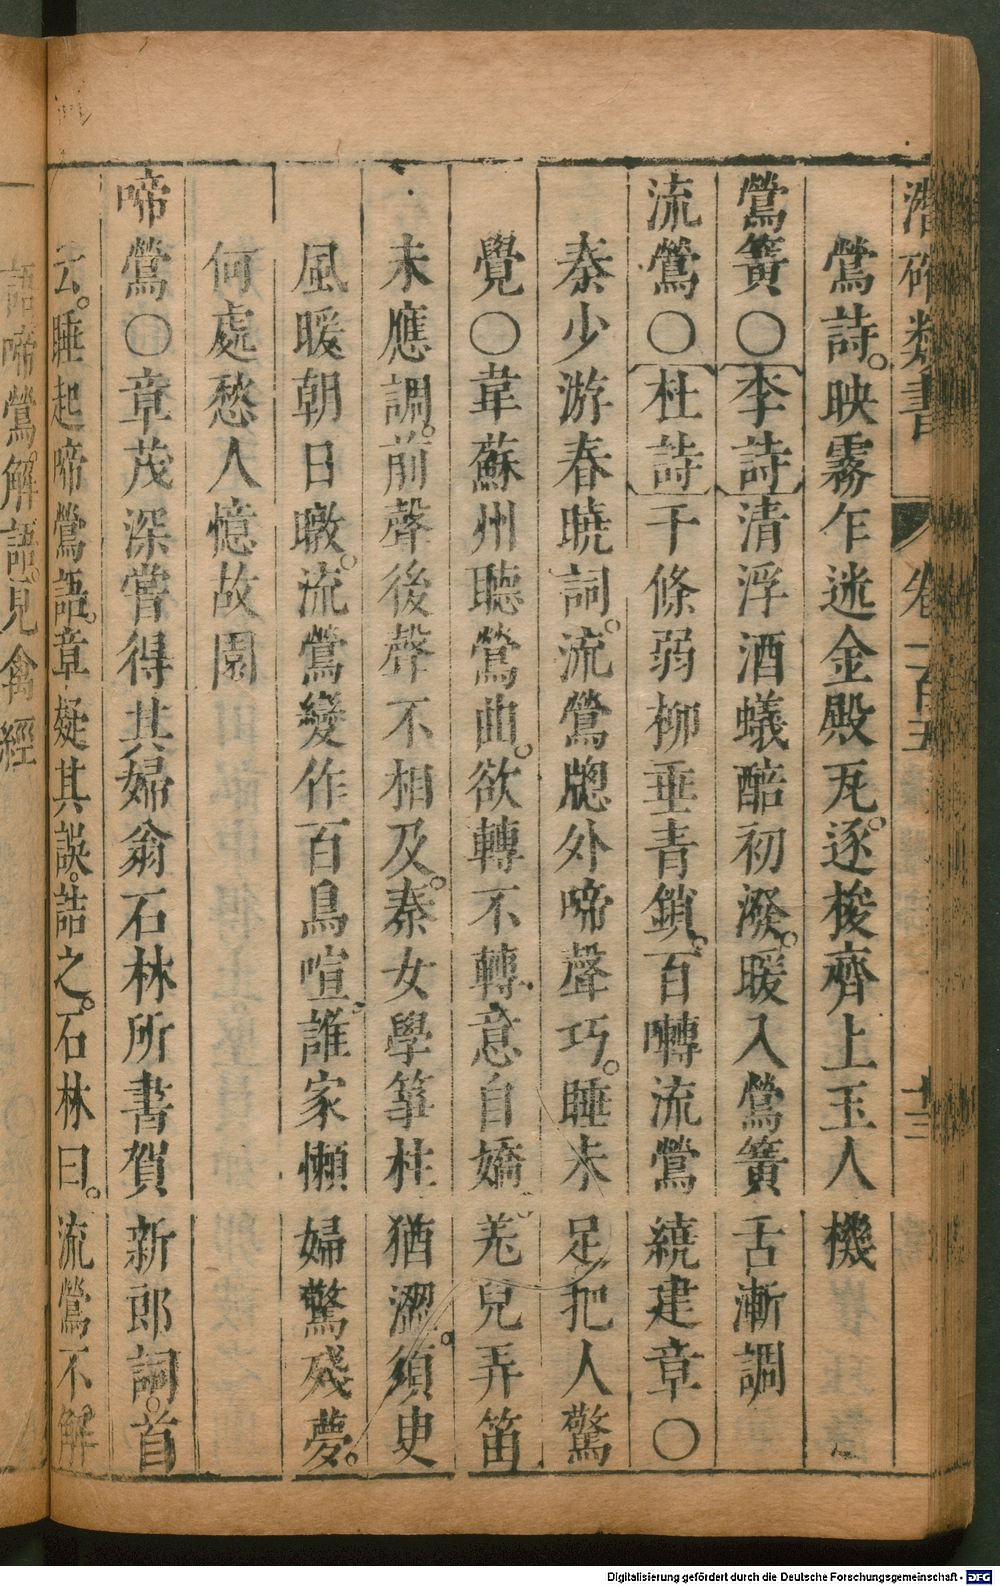 潛確類書 卷一百五 十三
鶯詩。映霧乍迷金殿瓦。逐梭齊上玉人機
鶯簧○李詩清浮酒蟻醅初潑。暖入鶯簧舌漸調
流鶯○杜詩千條弱柳垂青鎖。百囀流鶯繞建章○
秦少游春曉詞。流鶯牕外啼聲巧。睡未足把人驚
覺○韋蘇州聽鶯曲。欲轉不轉意自嬌。羌兒弄笛
未應調。前聲後聲不相及。秦女學箏柱猶澀。須臾
風暖朝日暾。流鶯變作百鳥喧。誰家懶婦驚殘夢。
何處愁人憶故園
啼鶯○章茂深嘗得其婦翁石林所書賀新郎詞。首
云。睡起啼鶯語。章疑其誤。詰之。石林曰。流鶯不解
語啼鶯解語。見禽經
Digitalisierung gefördert durch die Deutsche Forschungsgemeinschaft - DFG